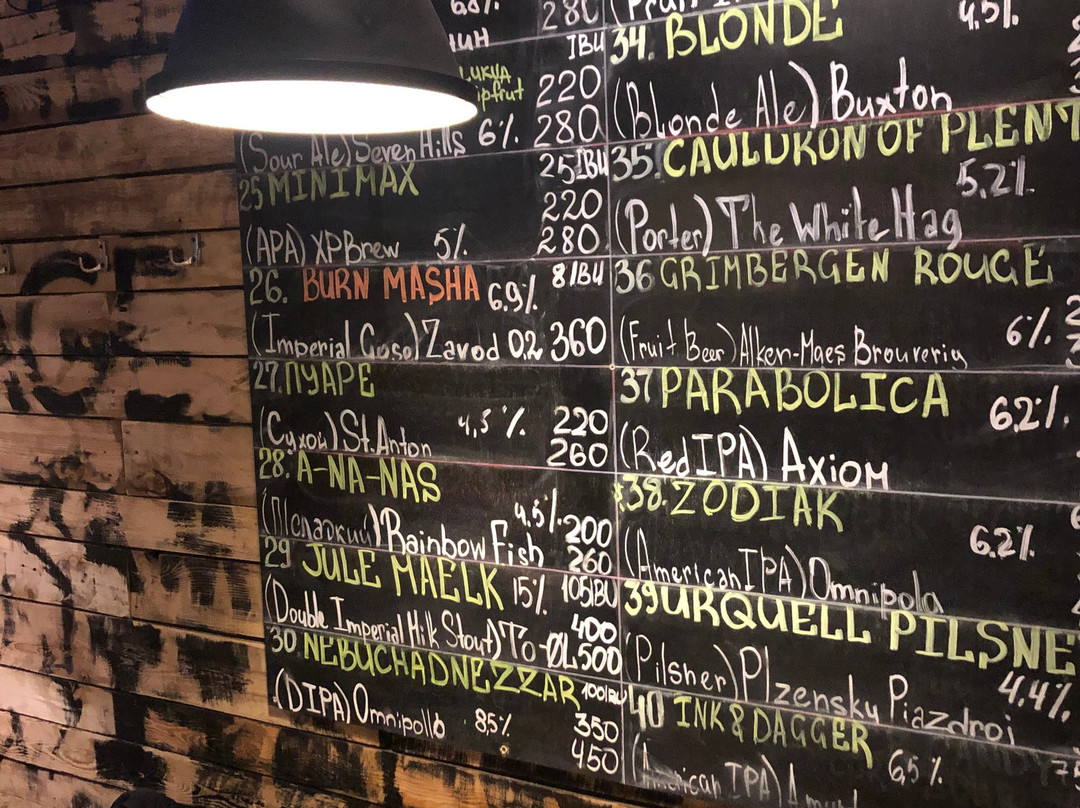 280
IBU
220
280
(Sour Ale) Seven Hills 6%
25 MINIMAX
25IBU
220
(APA) XPBrew 5%
280
26. BURN MASHA 6.9%
8IBU
(Imperial Gose) Zavod 02 360
27. ПУАРЕ
(Сухой) St.Anton 4,5%
220
260
28. A-NA-NAS
(Псладкий) Rainbow Fish 4.5%
200
260
29 JULE MAELK 15% 105IBU
(Double Imperial Milk Stout) To-ØL
400
500
30. NEBUCHADNEZZAR 100IBU
(DIPA) Omnipollo 8,5%
350
450
34. BLONDE
4,5%
(Blonde Ale) Buxton
35. CAULDRON OF PLENT
5,2%
(Porter) The White Hag
36 GRIMBERGEN ROUGE
6%
(Fruit Beer) Alken-Maes Brouverig
37 PARABOLICA
6,2%
(Red IPA) Axiom
38. ZODIAK
6,2%
(American IPA) Omnipola
39 URQUELL PILSNE
(Pilsner) Plzensky Piazdroj
4.4%
40 INK & DAGGER
6,5%
(American IPA)